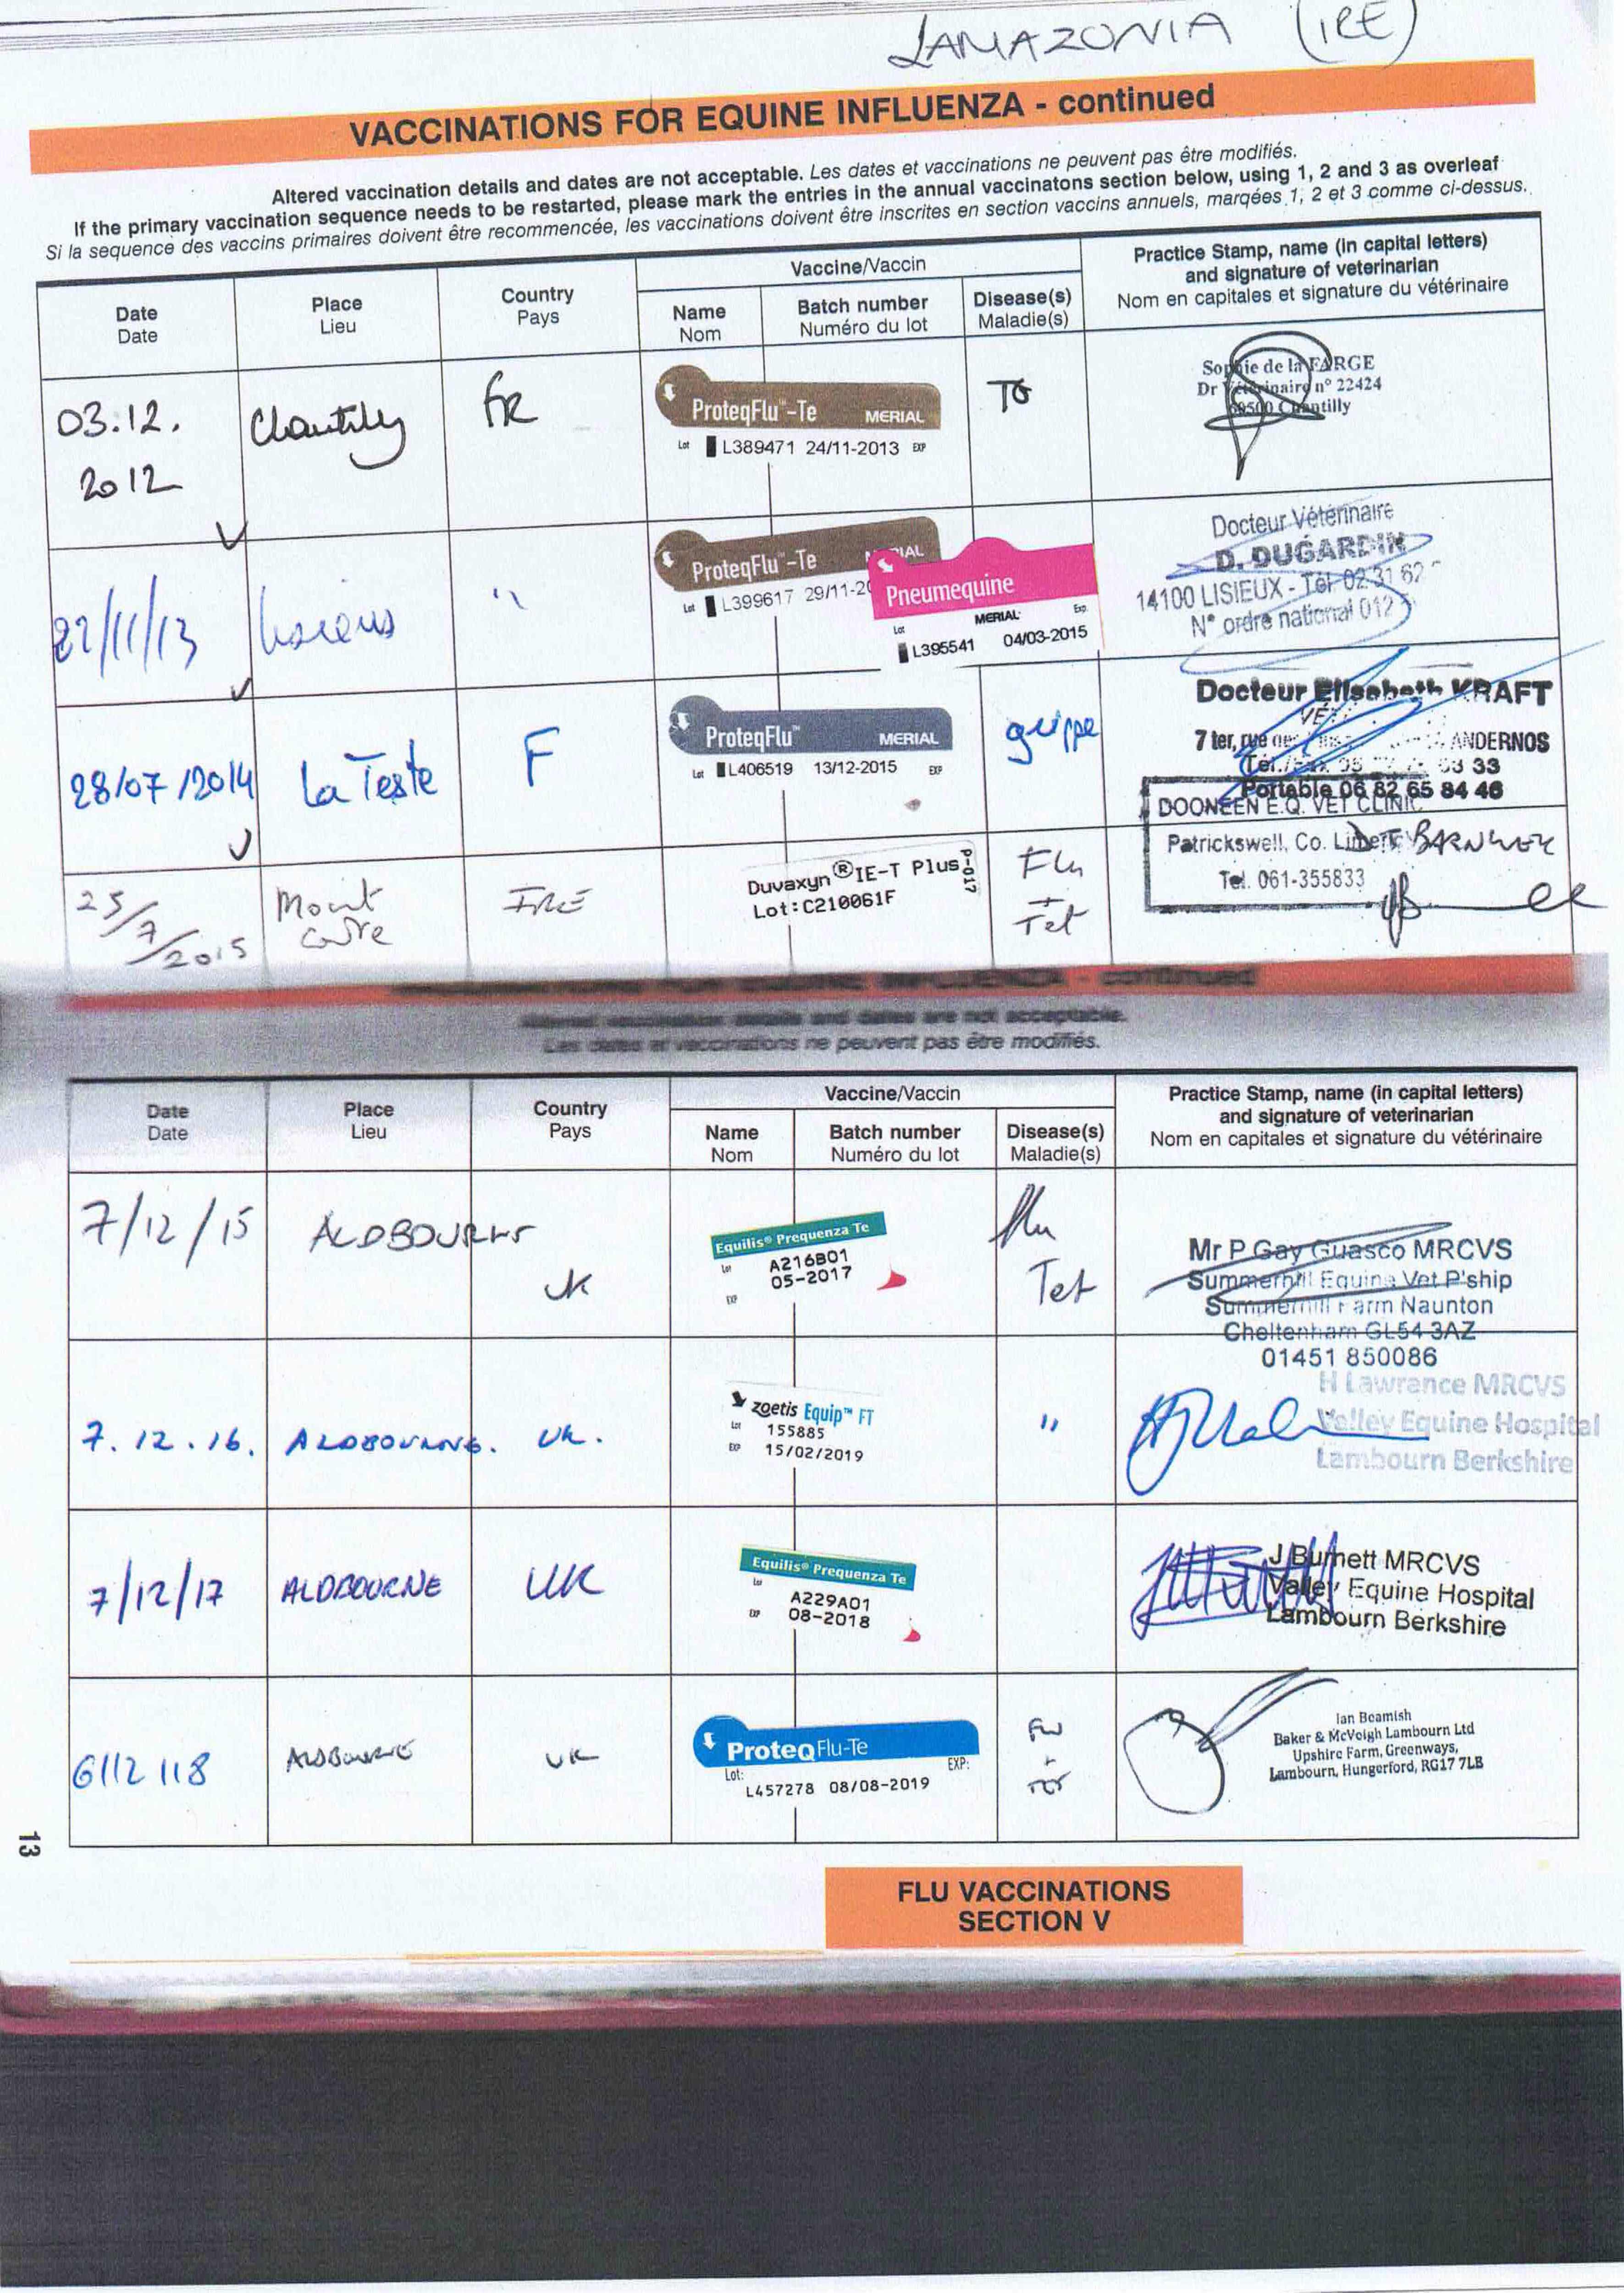 LAMAZONIA (IRE)
VACCINATIONS FOR EQUINE INFLUENZA - continued
Altered vaccination details and dates are not acceptable. Les dates et vaccinations ne peuvent pas être modifiés.
If the primary vaccination sequence needs to be restarted, please mark the entries in the annual vaccinatons section below, using 1, 2 and 3 as overleaf
Si la sequence des vaccins primaires doivent être recommencée, les vaccinations doivent être inscrites en section vaccins annuels, marqées 1, 2 et 3 comme ci-dessus.
Date
Date
Place
Lieu
Country
Pays
Vaccine/Vaccin
Name
Nom
Batch number
Numéro du lot
Disease(s)
Maladie(s)
Practice Stamp, name (in capital letters)
and signature of veterinarian
Nom en capitales et signature du vétérinaire
03.12.
2012
Chantilly
FR
ProteqFlu™-Te MERIAL
Lot L389471 24/11-2013 EXP
TG
Sophie de la FARGE
Dr Vétérinaire n° 22424
60500 Chantilly
22/11/13
"
ProteqFlu™-Te
Lot L399617 29/11-20
Pneumequine
MERIAL
Lot Exp.
L395541 04/03-2015
Docteur Vétérinaire
D. DUGARDIN
14100 LISIEUX - Tél 02 31 62
N° ordre national 012
28/07/2014
La Teste
F
ProteqFlu™ MERIAL
Lot L406519 13/12-2015 EXP
grippe
Docteur Elisabeth KRAFT
7 ter, rue des ANDERNOS
33
Portable 06 82 65 84 46
25/7/2015
Mount
IRE
Duvaxyn® IE-T Plus
Lot:C210061F
P-017
Flu
+
Tet
DOONEEN E.Q. VET CLINIC
Patrickswell, Co.
Tel. 061-355833
VACCINATIONS FOR EQUINE INFLUENZA - continued
Altered vaccination details and dates are not acceptable.
Les dates et vaccinations ne peuvent pas être modifiés.
Date
Date
Place
Lieu
Country
Pays
Vaccine/Vaccin
Name
Nom
Batch number
Numéro du lot
Disease(s)
Maladie(s)
Practice Stamp, name (in capital letters)
and signature of veterinarian
Nom en capitales et signature du vétérinaire
7/12/15
ALDBOURNE
UK
Equilis® Prequenza Te
Lot A216B01
EXP 05-2017
Flu
Tet
Mr P Gay Guasco MRCVS
Summerhill Equine Vet P'ship
Summerhill Farm Naunton
Cheltenham GL54 3AZ
01451 850086
7.12.16.
ALDBOURNE.
UK.
zoetis Equip™ FT
Lot 155885
EXP 15/02/2019
"
H Lawrance MRCVS
Valley Equine Hospital
Lambourn Berkshire
7/12/17
ALDBOURNE
UK
Equilis® Prequenza Te
Lot A229A01
EXP 08-2018
J Burnett MRCVS
Valley Equine Hospital
Lambourn Berkshire
6/12/18
ALDBOURNE
UK
ProteqFlu-Te
Lot: EXP:
L457278 08/08-2019
Flu
+
Tet
Ian Beamish
Baker & McVeigh Lambourn Ltd
Upshire Farm, Greenways,
Lambourn, Hungerford, RG17 7LB
13
FLU VACCINATIONS
SECTION V